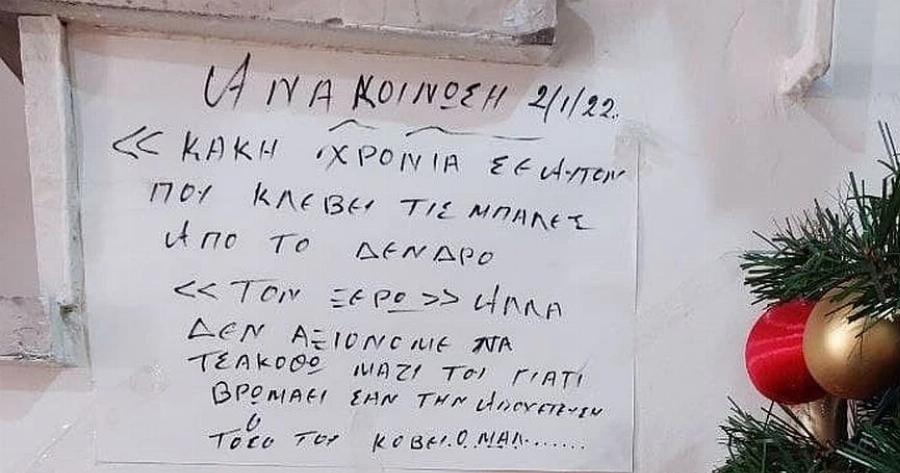 ΑΝΑΚΟΙΝΩΣΗ 2/1/22.
<< ΚΑΚΗ ΧΡΟΝΙΑ ΣΕ ΑΥΤΟΝ
ΠΟΥ ΚΛΕΒΕΙ ΤΙΣ ΜΠΑΛΕΣ
ΑΠΟ ΤΟ ΔΕΝΔΡΟ
<< ΤΟΝ ΞΕΡΩ >> ΑΛΛΑ
ΔΕΝ ΑΞΙΟΝΟΜΕ ΝΑ
ΤΣΑΚΟΘΩ ΜΑΖΙ ΤΟΥ ΓΙΑΤΙ
ΒΡΩΜΑΕΙ ΣΑΝ ΤΗΝ ΑΠΟΧΕΤΕΥΣΗ
Ο
ΤΟΣΟ ΤΟΥ ΚΟΒΕΙ.Ο ΜΑΛ.......